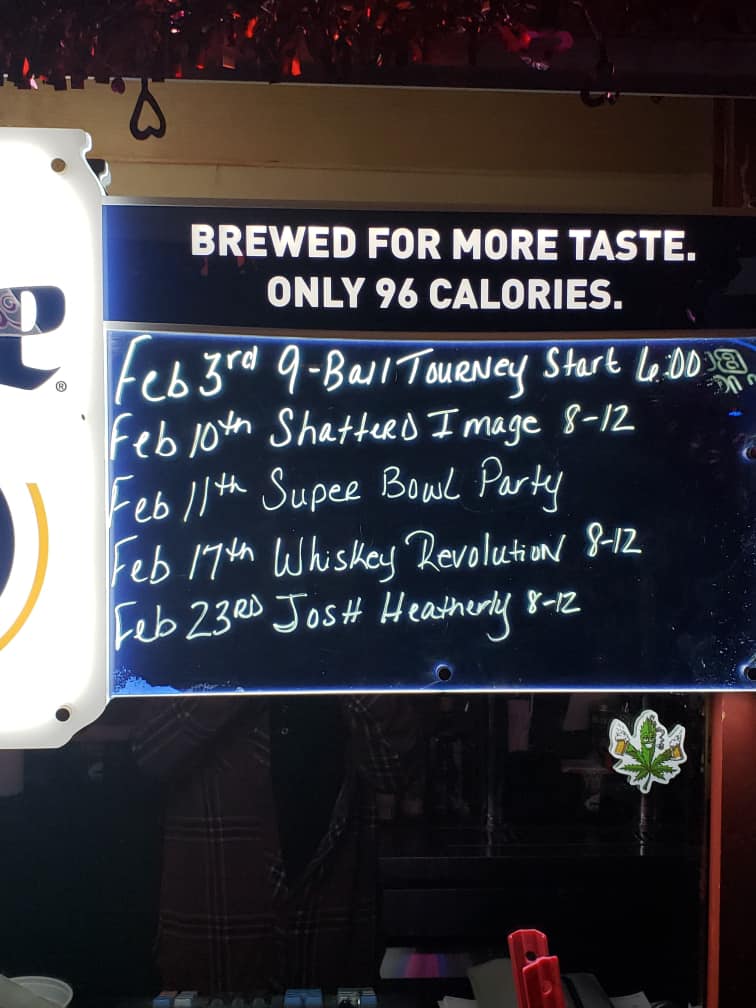 BREWED FOR MORE TASTE.
ONLY 96 CALORIES.
e
®
Feb 3rd 9-Ball Tourney Start 6:00
Feb 10th Shattered Image 8-12
Feb 11th Super Bowl Party
Feb 17th Whiskey Revolution 8-12
Feb 23RD Josh Heatherly 8-12